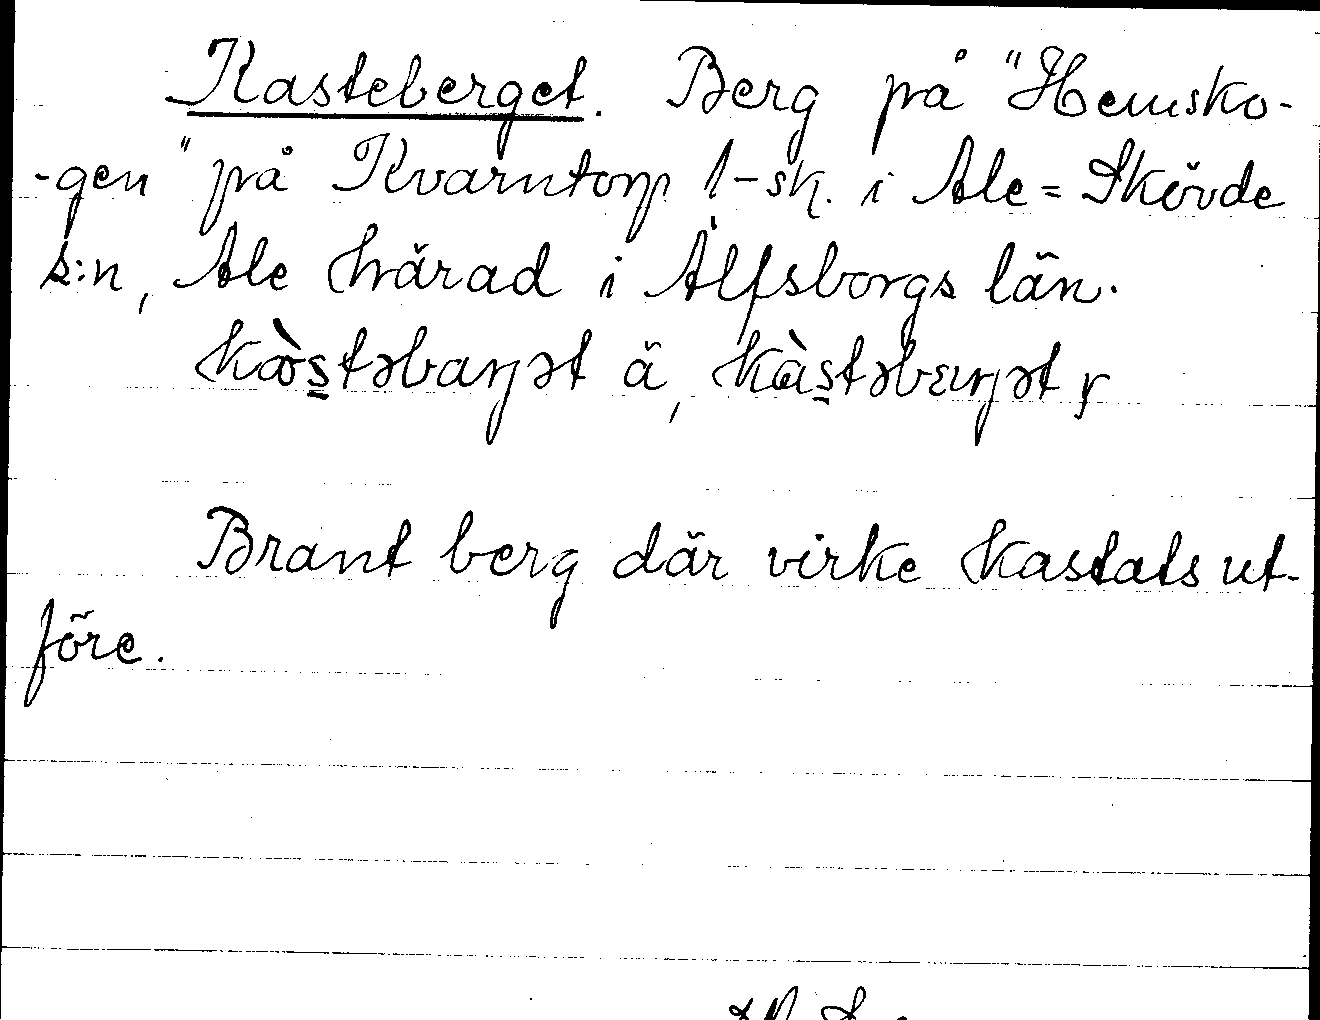 Kasteberget. Berg på "Hemsko-
-gen" på Kvarntorp 1-sk. i Ale=Skövde
s:n, Ale härad i Älfsborgs län.
Brant berg där virke kastats ut-
före.